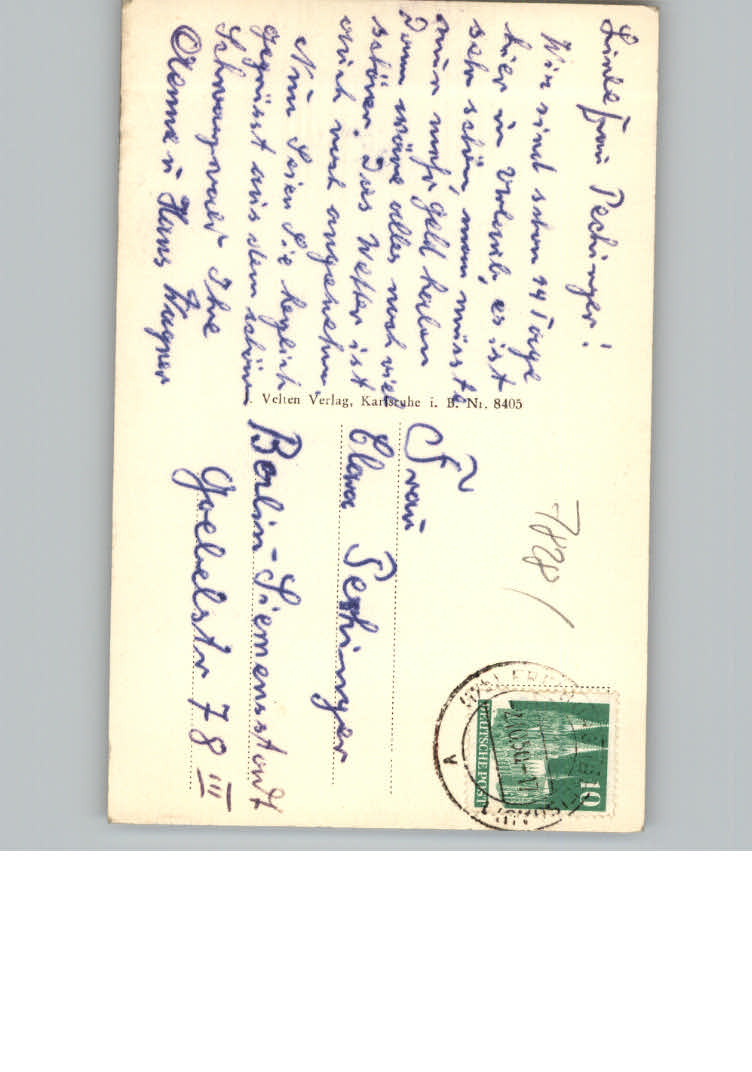 Liebe Frau Pechinger!
Wir sind schon 14 Tage
hier in Urlaub, es ist
sehr schön, man müsste
nur mehr Geld haben
Dann wäre alles noch viel
schöner. Das Wetter ist
auch noch angenehm.
Nun Seien Sie herzlich
gegrüsst aus dem schönen
Schwarzwald Ihre
u Hans Wagner
Velten Verlag, Karlsruhe i. B. Nr. 8405
Frau
Clara Pechinger
Berlin-Siemensstadt
Goebelstr 78 III
7828/
DEUTSCHE POST
10
A